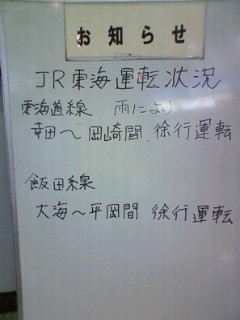 お知らせ
JR東海運転状況
東海道線 雨により
幸田〜岡崎間、徐行運転
飯田線
大海〜平岡間 徐行運転